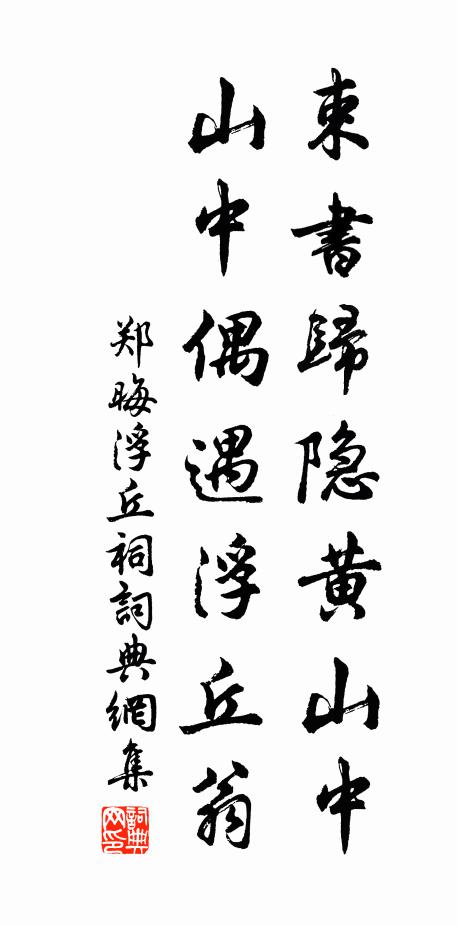 束書歸隐黄山中
山中偶遇浮丘翁
郑晦浮丘祠詞典網集
詞典网印